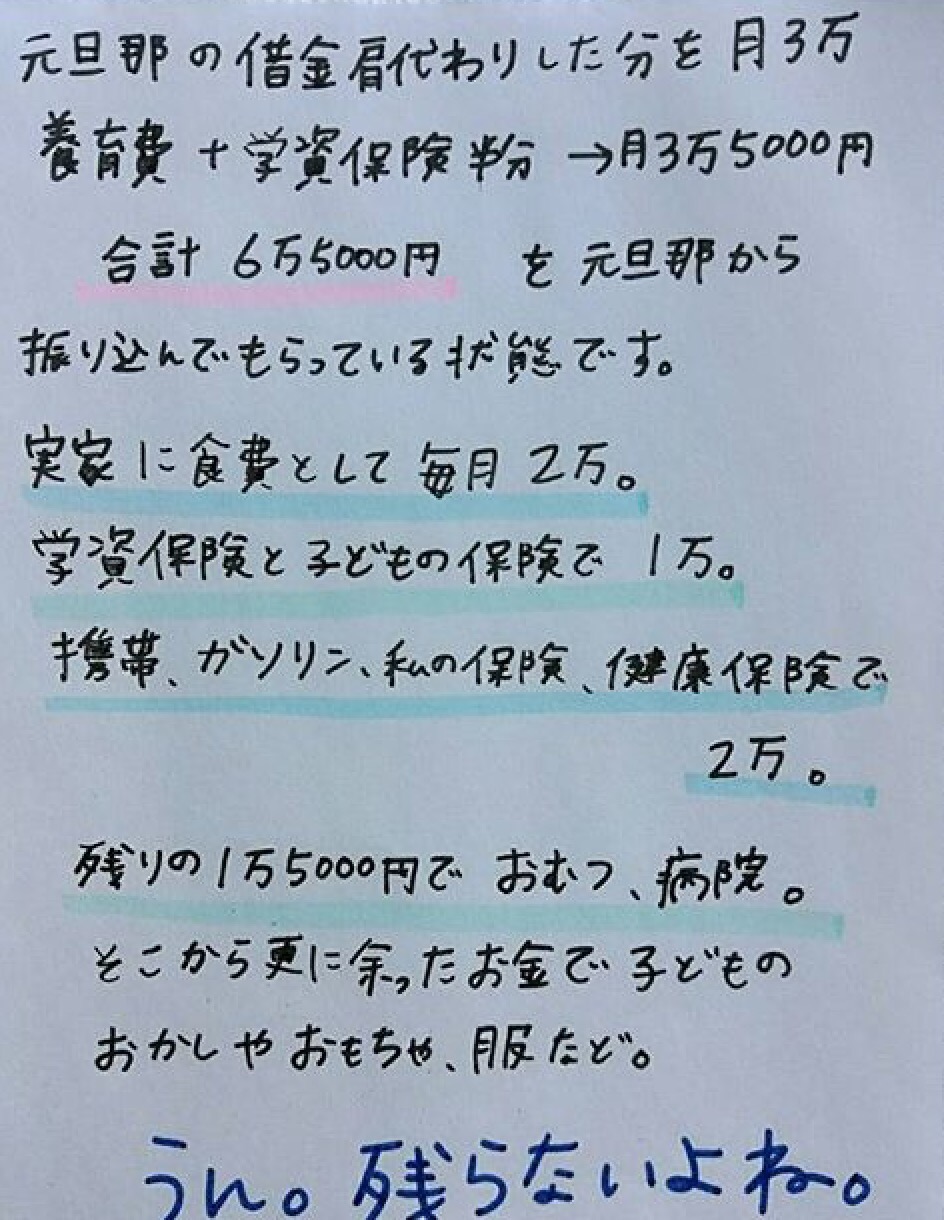 元旦那の借金肩代わりした分を月3万
養育費+学資保険半分→月3万5000円
合計 6万5000円 を元旦那から
振り込んでもらっている状態です。
実家に食費として毎月2万。
学資保険と子どもの保険で 1万。
携帯、ガソリン、私の保険、健康保険で
2万。
残りの1万5000円で おむつ、病院。
そこから更に余ったお金で子どもの
おかしやおもちゃ、服など。
うん。残らないよね。